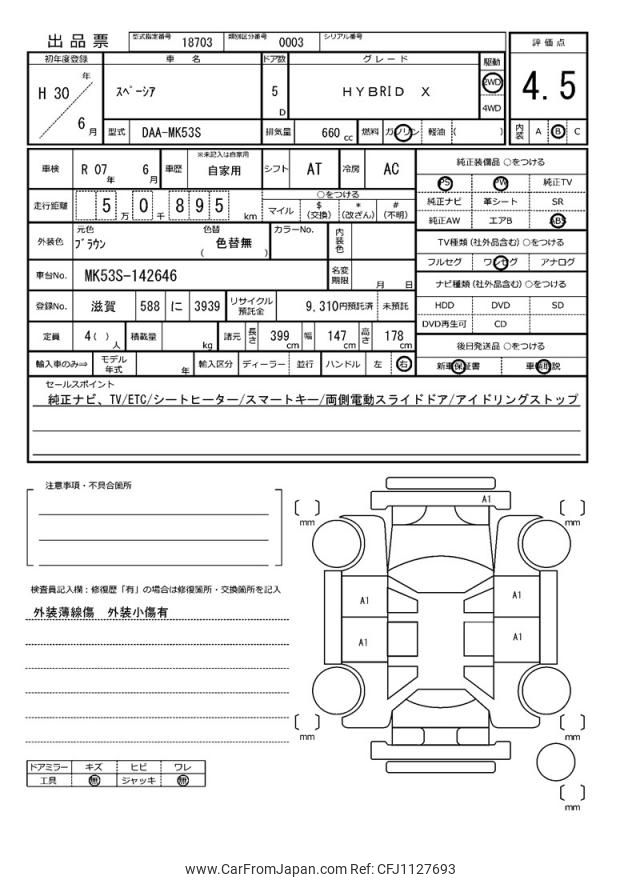 出品票 型式指定番号 18703 類別区分番号 0003 シリアル番号
評価点
4.5
内装 A B C
初年度登録 車名 ドア数 グレード 駆動
H 30 年 6 月
スペーシア 5 D HYBRID X 2WD 4WD
型式 DAA-MK53S 排気量 660 cc 燃料 ガソリン 軽油 ( )
車検 R 07 年 6 月 車歴 ※未記入は自家用 自家用 シフト AT 冷房 AC
走行距離 5 万 0 千 8 9 5 km ○をつける
マイル $(交換) *(改ざん) #(不明)
外装色 元色 ブラウン 色替 ( 色替無 ) カラーNo. 内装色
車台No. MK53S-142646 名変期限 月 日
登録No. 滋賀 588 に 3939 リサイクル預託金 9,310円預託済 未預託
定員 4( ) 人 積載量 kg 諸元 長さ 399 cm 幅 147 cm 高さ 178 cm
輸入車のみ⇒ モデル年式 年 輸入区分 ディーラー 並行 ハンドル 左 右
純正装備品 ○をつける
PS PW 純正TV
純正ナビ 革シート SR
純正AW エアB ABS
TV種類(社外品含む) ○をつける
フルセグ ワンセグ アナログ
ナビ種類(社外品含む) ○をつける
HDD DVD SD
DVD再生可 CD
後日発送品 ○をつける
新車保証書 車輌取説
セールスポイント
純正ナビ、TV/ETC/シートヒーター/スマートキー/両側電動スライドドア/アイドリングストップ
注意事項・不具合箇所
検査員記入欄：修復歴「有」の場合は修復箇所・交換箇所を記入
外装薄線傷 外装小傷有
ドアミラー キズ ヒビ ワレ
工具 無 ジャッキ 無
A1
[ ] mm
[ ] mm
A1
A1
A1
A1
[ ] mm
[ ] mm
[ ] mm
www.CarFromJapan.com Ref: CFJ1127693